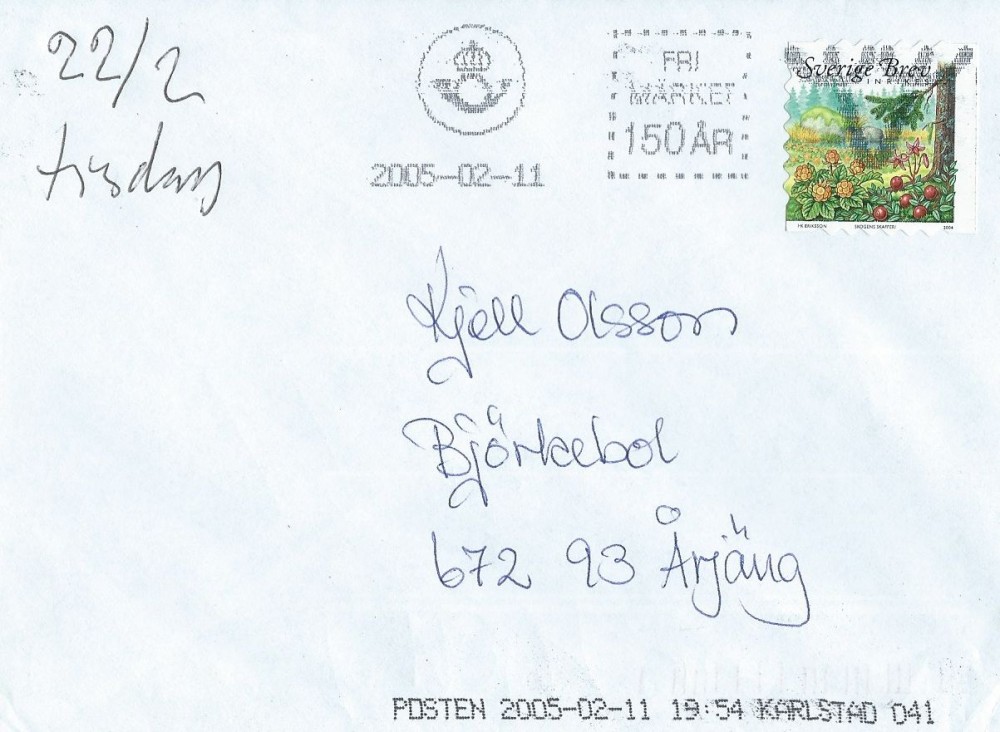 22/2
tisdag
FRI
MÄRKET
150 ÅR
2005-02-11
Sverige Brev
INRIKES
HK ERIKSSON SKOGENS SKAFFERI 2004
Kjell Olsson
Björkebol
672 93 Årjäng
POSTEN 2005-02-11 19:54 KARLSTAD 041